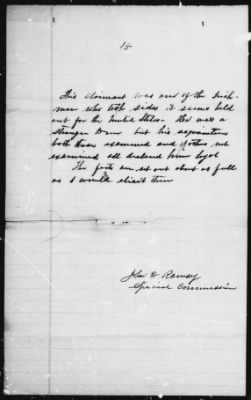 15
This claimant was one of the Irish-
men who both sides it seems held
out for the United States. He was a
stranger to me but his acquaintances
both those examined and others not
examined all declared him loyal
The facts are set out about as full
as I would elicit them
John H Ramsey
Special Commissioner